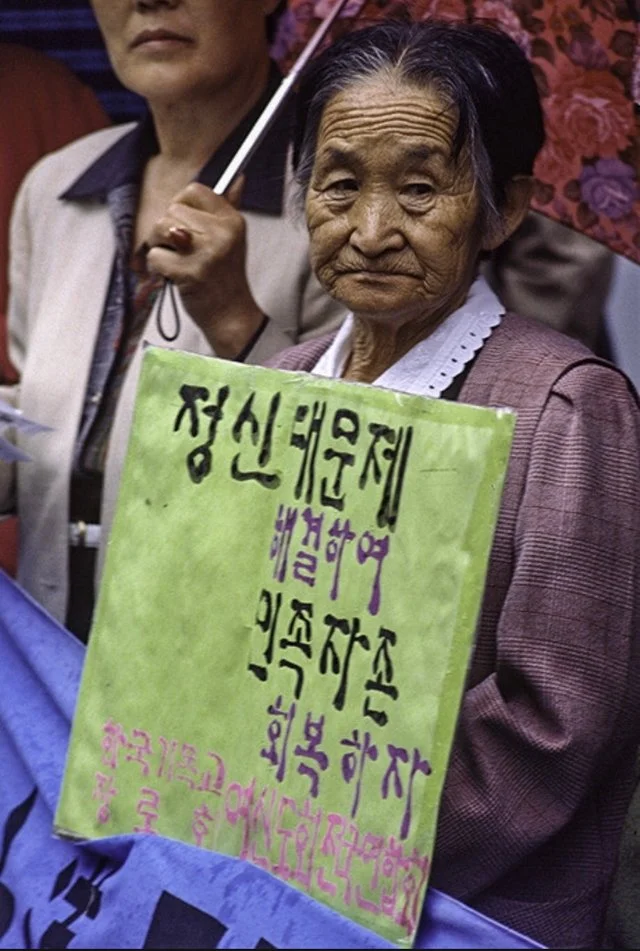 정신대문제
해결하여
민족자존
회복하자
한국기독교
장로회 여신도회전국연합회